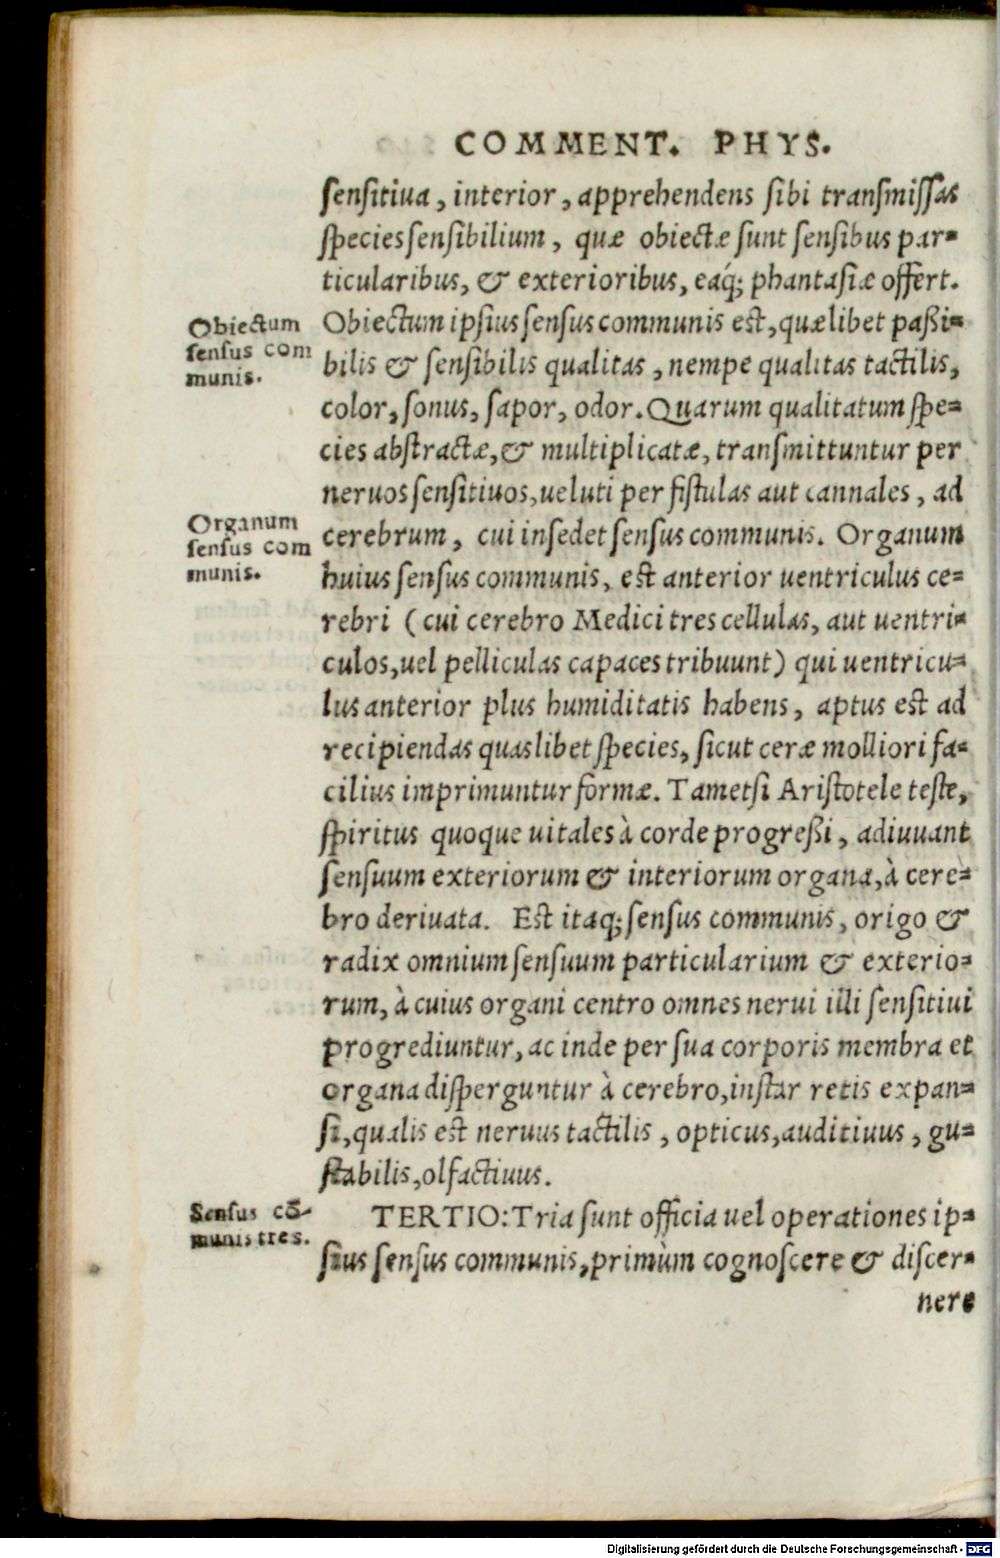 COMMENT. PHYS.
ſenſitiua, interior, apprehendens ſibi tranſmiſſas
ſpecies ſenſibilium, quæ obiectæ ſunt ſenſibus par-
ticularibus, & exterioribus, eáq; phantaſiæ offert.
Obiectum
ſenſus com
munis.
Obiectum ipſius ſenſus communis eſt, quælibet paßi-
bilis & ſenſibilis qualitas, nempe qualitas tactilis,
color, ſonus, ſapor, odor. Quarum qualitatum ſpe-
cies abſtractæ, & multiplicatæ, tranſmittuntur per
neruos ſenſitiuos, ueluti per fiſtulas aut cannales, ad
Organum
ſenſus com
munis.
cerebrum, cui inſedet ſenſus communis. Organum
huius ſenſus communis, eſt anterior uentriculus ce-
rebri (cui cerebro Medici tres cellulas, aut uentri-
culos, uel pelliculas capaces tribuunt) qui uentricu-
lus anterior plus humiditatis habens, aptus eſt ad
recipiendas quaslibet ſpecies, ſicut ceræ molliori fa-
cilius imprimuntur formæ. Tametſi Ariſtotele teſte,
ſpiritus quoque uitales à corde progreßi, adiuuant
ſenſuum exteriorum & interiorum organa, à cere-
bro deriuata. Eſt itaq; ſenſus communis, origo &
radix omnium ſenſuum particularium & exterio-
rum, à cuius organi centro omnes nerui illi ſenſitiui
progrediuntur, ac inde per ſua corporis membra et
organa diſperguntur à cerebro, inſtar retis expan-
ſi, qualis eſt neruus tactilis, opticus, auditiuus, gu-
ſtabilis, olfactiuus.
Senſus cō-
munis tres.
TERTIO: Tria ſunt officia uel operationes ip-
ſius ſenſus communis, primùm cognoſcere & diſcer-
nere
Digitalisierung gefördert durch die Deutsche Forschungsgemeinschaft - DFG